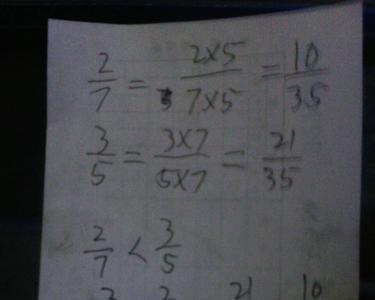 2/7 = 2×5/7×5 = 10/35
3/5 = 3×7/5×7 = 21/35
2/7 < 3/5
3 2 21 10